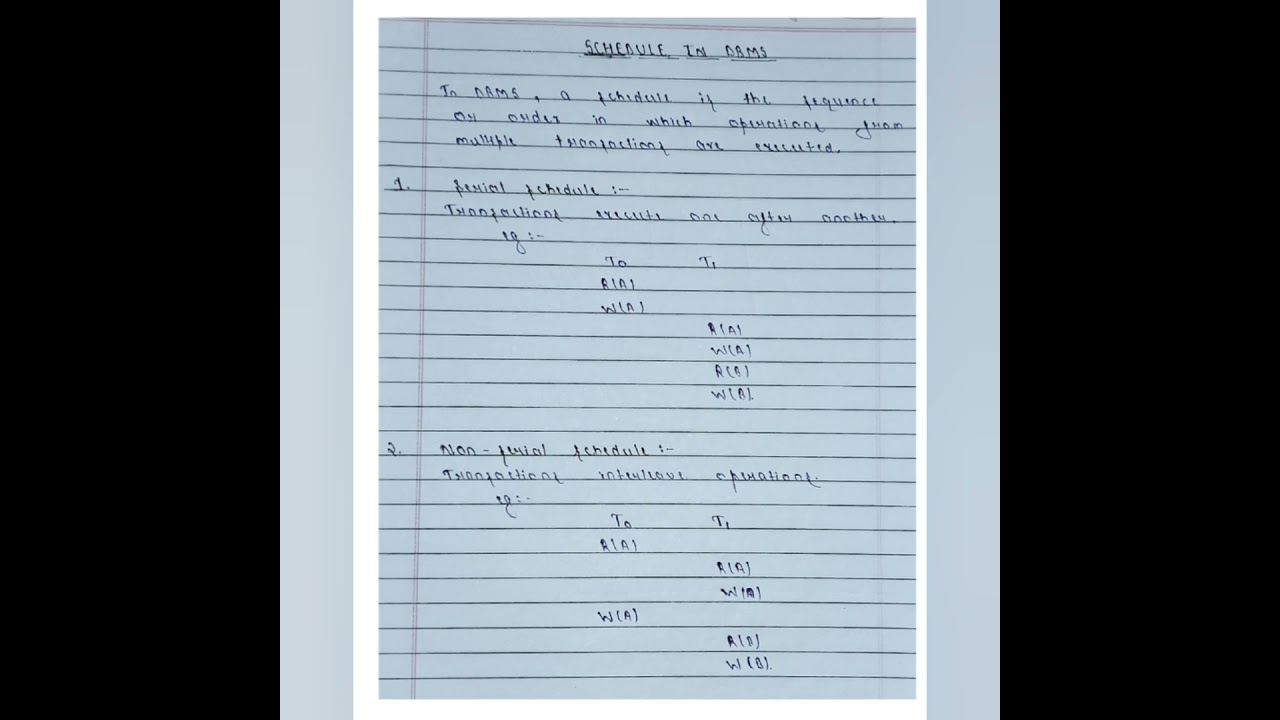 SCHEDULE IN DBMS
In DBMS, a schedule is the sequence
or order in which operations from
multiple transactions are executed.
1. Serial schedule :-
Transactions execute one after another.
eg :-
T0 T1
R(A)
W(A)
R(A)
W(A)
R(B)
W(B).
2. Non-serial schedule :-
Transactions interleave operations.
eg :-
T0 T1
R(A)
R(A)
W(A)
W(A)
R(B)
W(B).